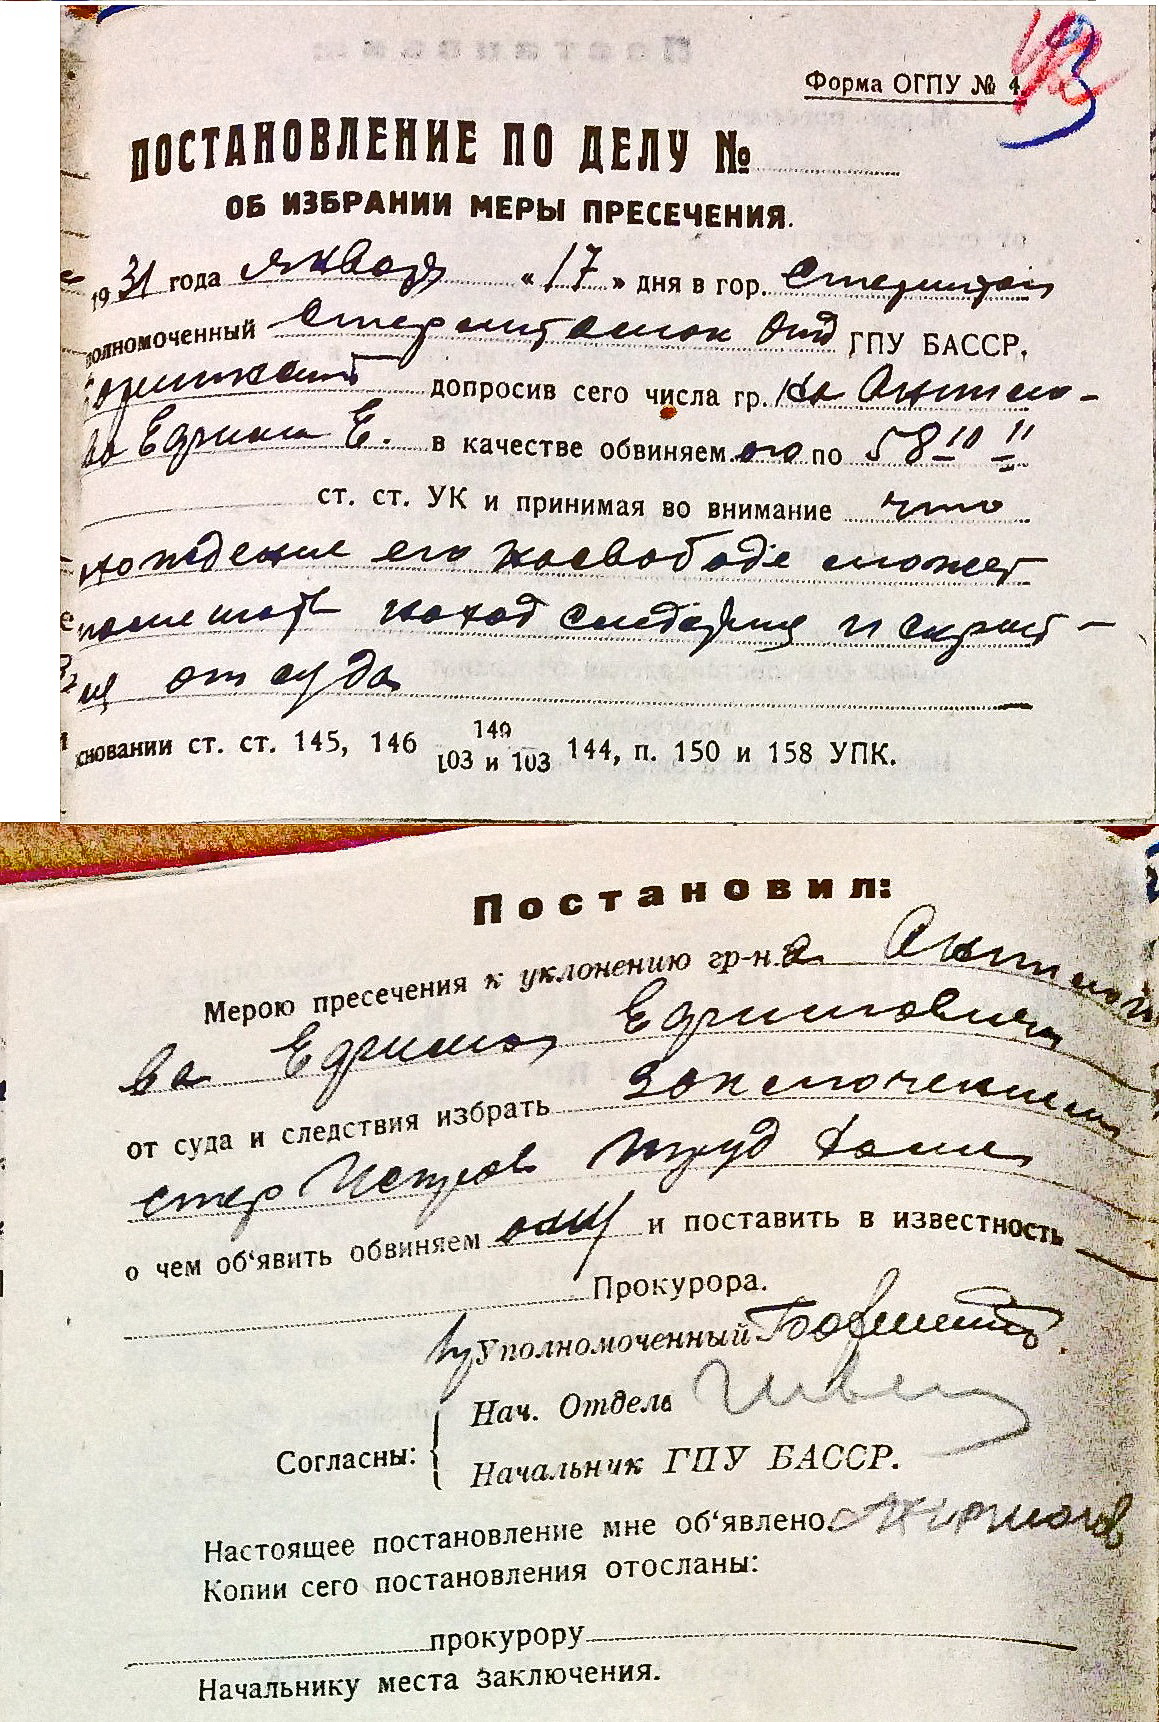 Форма ОГПУ № 4.
43
ПОСТАНОВЛЕНИЕ ПО ДЕЛУ №
ОБ ИЗБРАНИИ МЕРЫ ПРЕСЕЧЕНИЯ.
1931 года января «17» дня в гор.
олномоченный Стерлитамак Отд ГПУ БАССР,
допросив сего числа гр.
Ефрима Е. в качестве обвиняем ого по 58 10 11
ст. ст. УК и принимая во внимание что
хождение его на свободе может
помешать на ход следствия и скрыт-
ся от суда
сновании ст. ст. 145, 146 149/103 и 103 144, п. 150 и 158 УПК.
Постановил:
Мерою пресечения к уклонению гр-на
ва Ефрима Ефримовича
от суда и следствия избрать заключение
стер Исправ Труд Доме
о чем об‘явить обвиняем ому и поставить в известность
Прокурора.
Уполномоченный
Нач. Отдела
Согласны:
Начальник ГПУ БАССР.
Настоящее постановление мне об‘явлено.
Копии сего постановления отосланы:
прокурору
Начальнику места заключения.